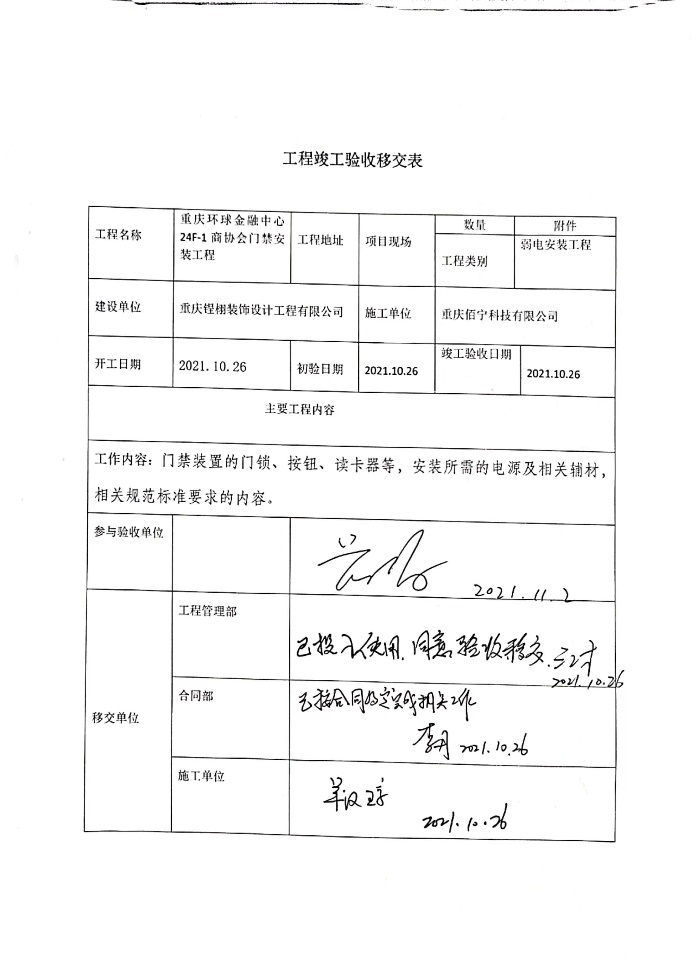 工程竣工验收移交表
工程名称
重庆环球金融中心
24F-1 商协会门禁安
装工程
工程地址
项目现场
数量
附件
工程类别
弱电安装工程
建设单位
重庆铿栩装饰设计工程有限公司
施工单位
重庆佰宁科技有限公司
开工日期
2021.10.26
初验日期
2021.10.26
竣工验收日期
2021.10.26
主要工程内容
工作内容：门禁装置的门锁、按钮、读卡器等，安装所需的电源及相关辅材，
相关规范标准要求的内容。
参与验收单位
2021.11.2
移交单位
工程管理部
已投入使用,同意验收移交.
2021.10.26
合同部
已按合同约定完成相关工作
2021.10.26
施工单位
2021.10.26